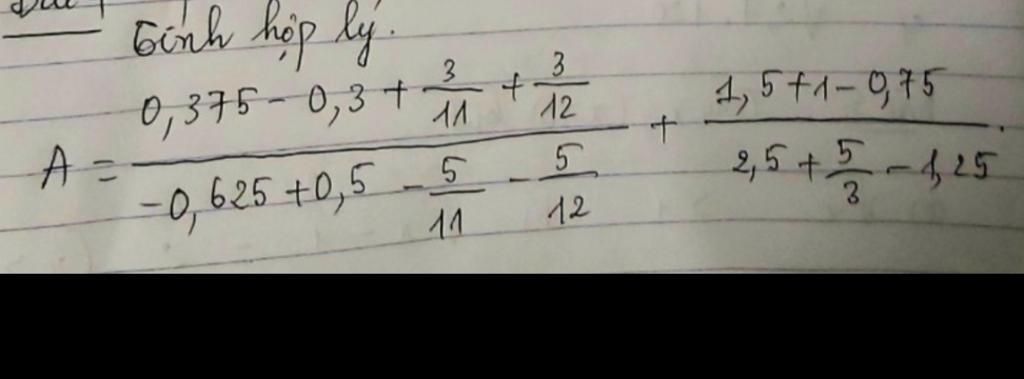 Tính hợp lý.
A = \frac{0,375 - 0,3 + \frac{3}{11} + \frac{3}{12}}{-0,625 + 0,5 - \frac{5}{11} - \frac{5}{12}} + \frac{1,5 + 1 - 0,75}{2,5 + \frac{5}{3} - 1,25}.